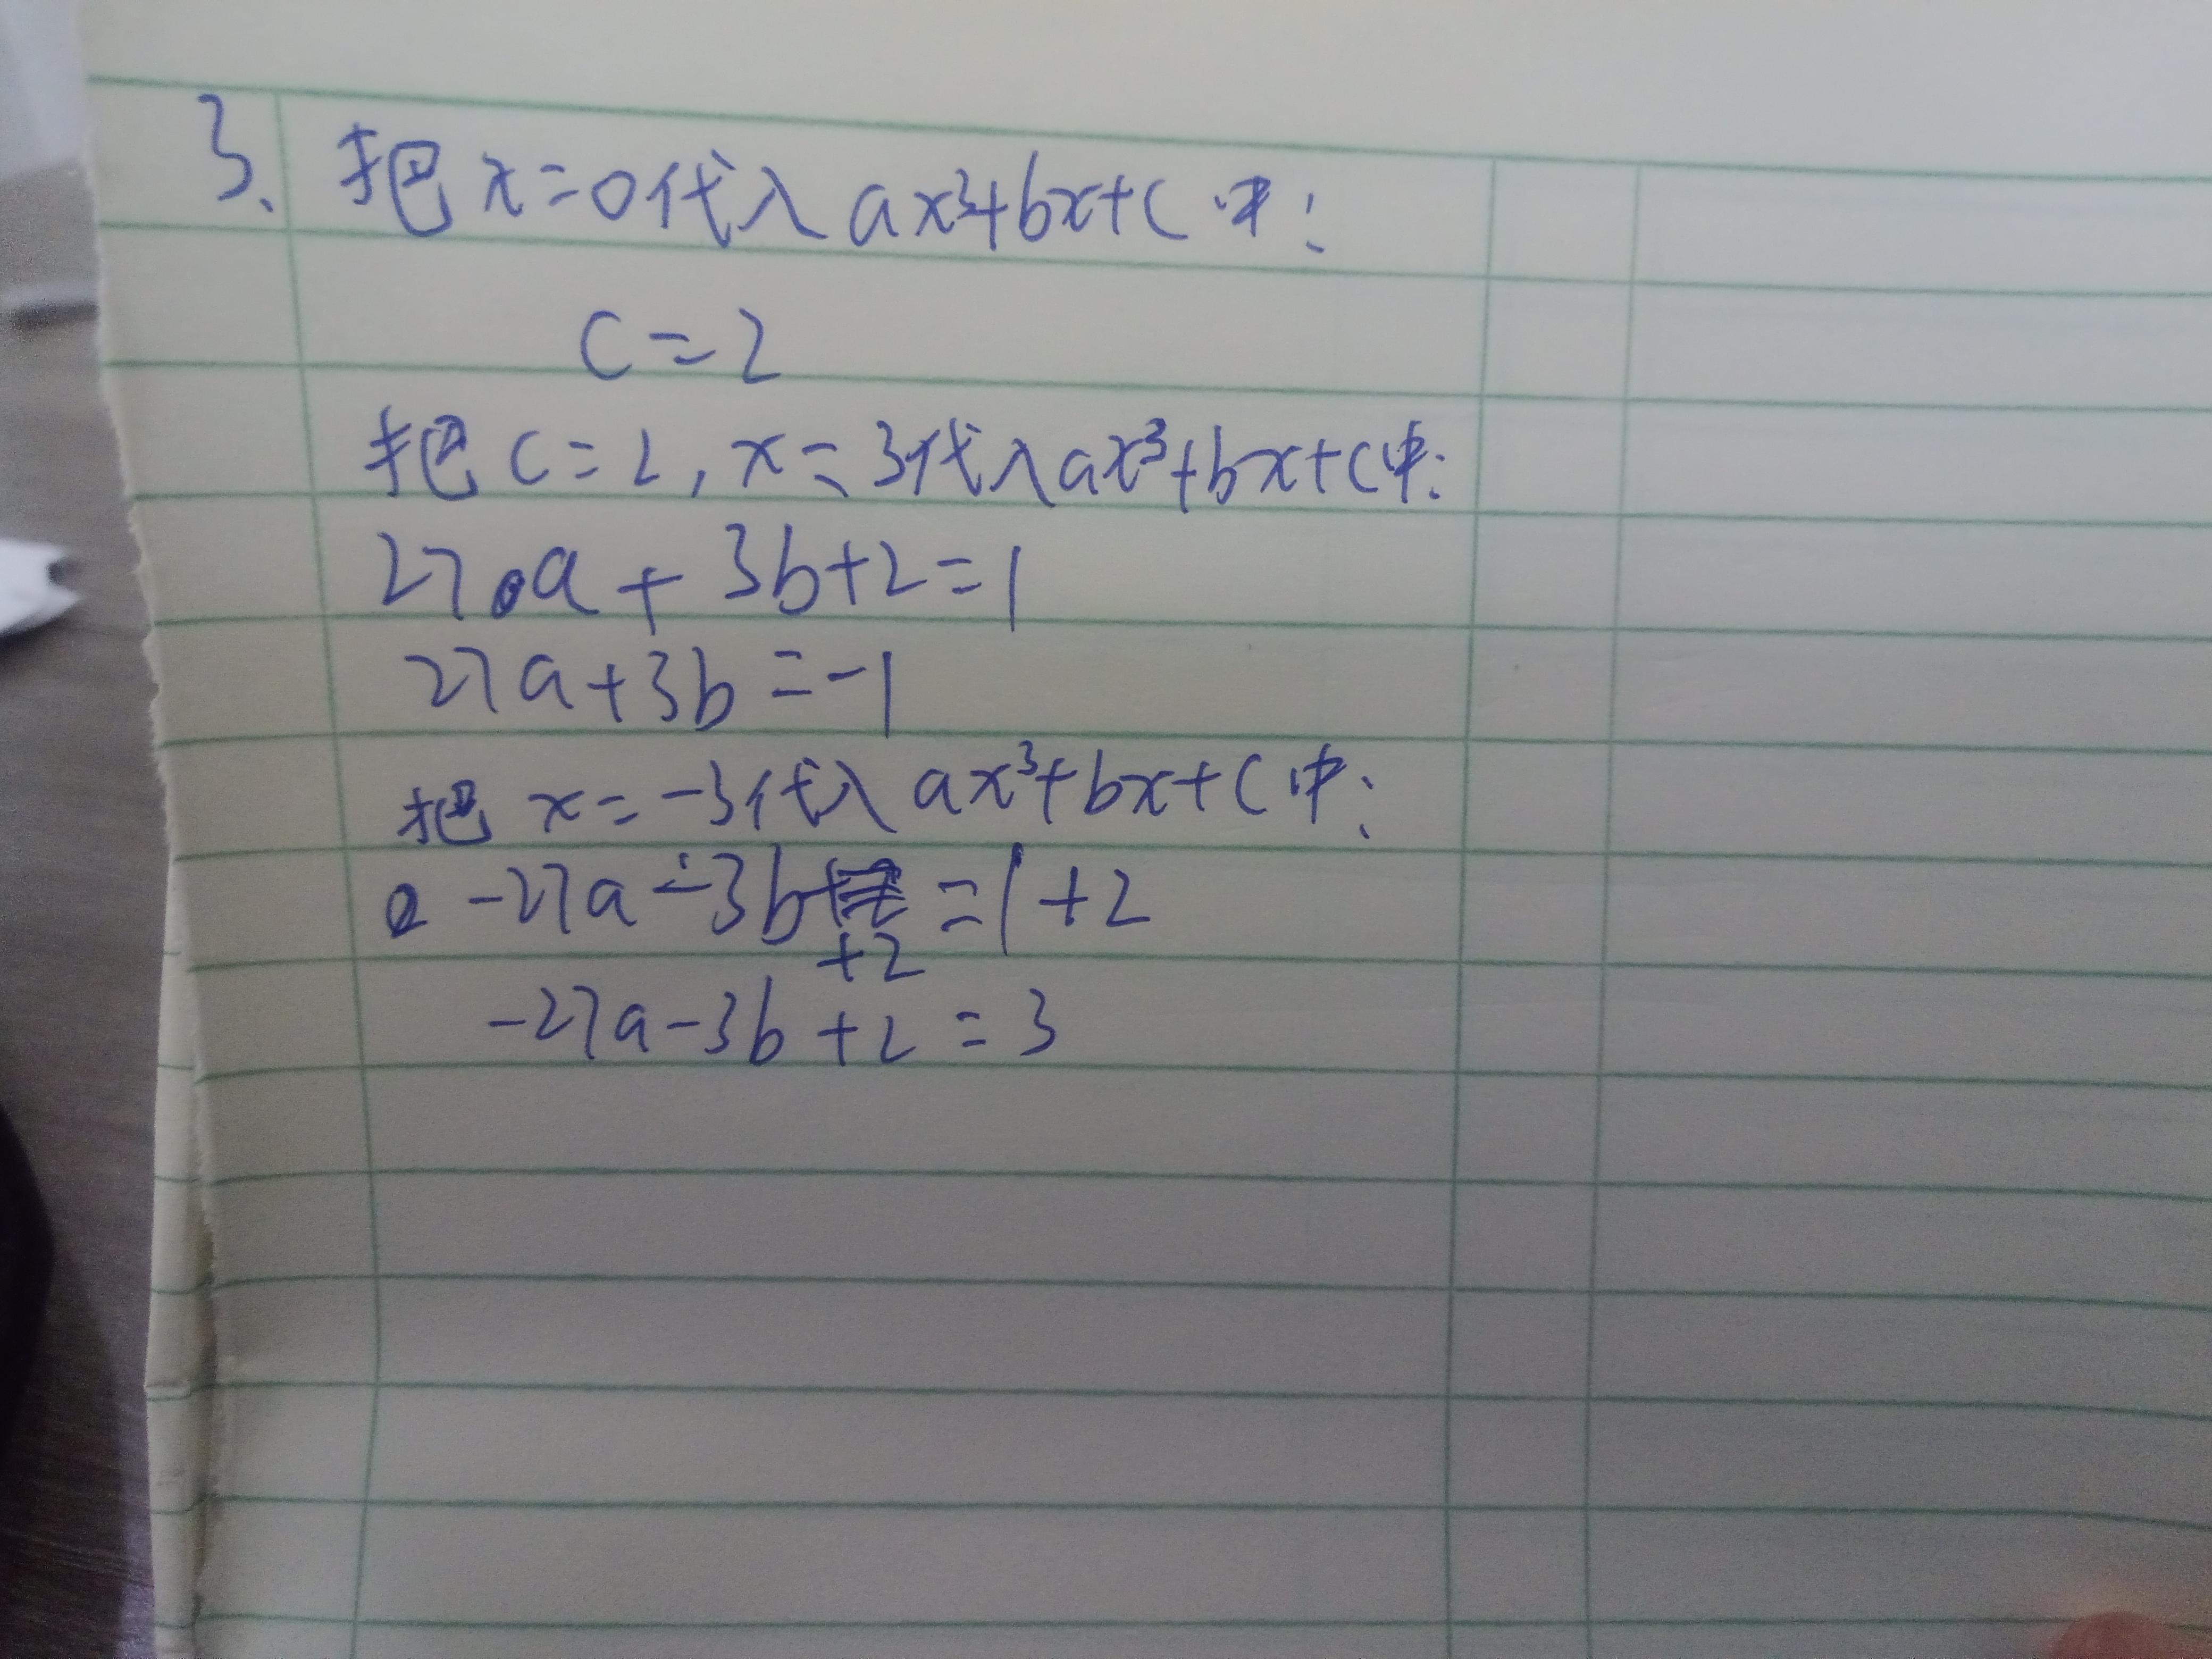 3、把x=0代入ax³+bx+c中：
c=2
把c=2,x=3代入ax³+bx+c中：
27a+3b+2=1
27a+3b=-1
把x=-3代入ax³+bx+c中：
-27a-3b+2=1+2
-27a-3b+2=3